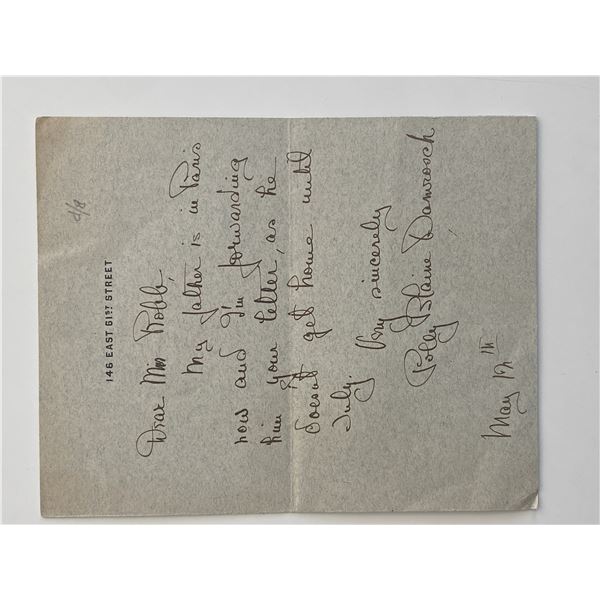 146 EAST 61ST STREET
Dear Mrs Robb,
My father is in Paris
now and I'm forwarding
him your letter, as he
doesn't get home until
July.
Very sincerely
Polly Blaine Damrosch
May 12th